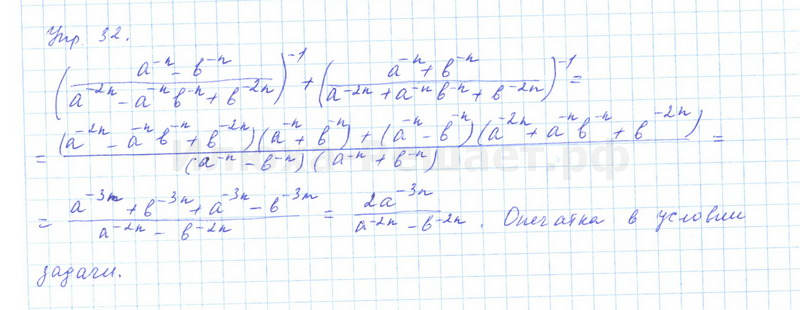 Упр 32.
(a⁻ⁿ - b⁻ⁿ / a⁻²ⁿ - a⁻ⁿb⁻ⁿ + b⁻²ⁿ)⁻¹ + (a⁻ⁿ + b⁻ⁿ / a⁻²ⁿ + a⁻ⁿb⁻ⁿ + b⁻²ⁿ)⁻¹ =
= (a⁻²ⁿ - a⁻ⁿb⁻ⁿ + b⁻²ⁿ)(a⁻ⁿ + b⁻ⁿ) + (a⁻ⁿ - b⁻ⁿ)(a⁻²ⁿ + a⁻ⁿb⁻ⁿ + b⁻²ⁿ) / (a⁻ⁿ - b⁻ⁿ)(a⁻ⁿ + b⁻ⁿ) =
= a⁻³ⁿ + b⁻³ⁿ + a⁻³ⁿ - b⁻³ⁿ / a⁻²ⁿ - b⁻²ⁿ = 2a⁻³ⁿ / a⁻²ⁿ - b⁻²ⁿ. Опечатка в условии
задачи.